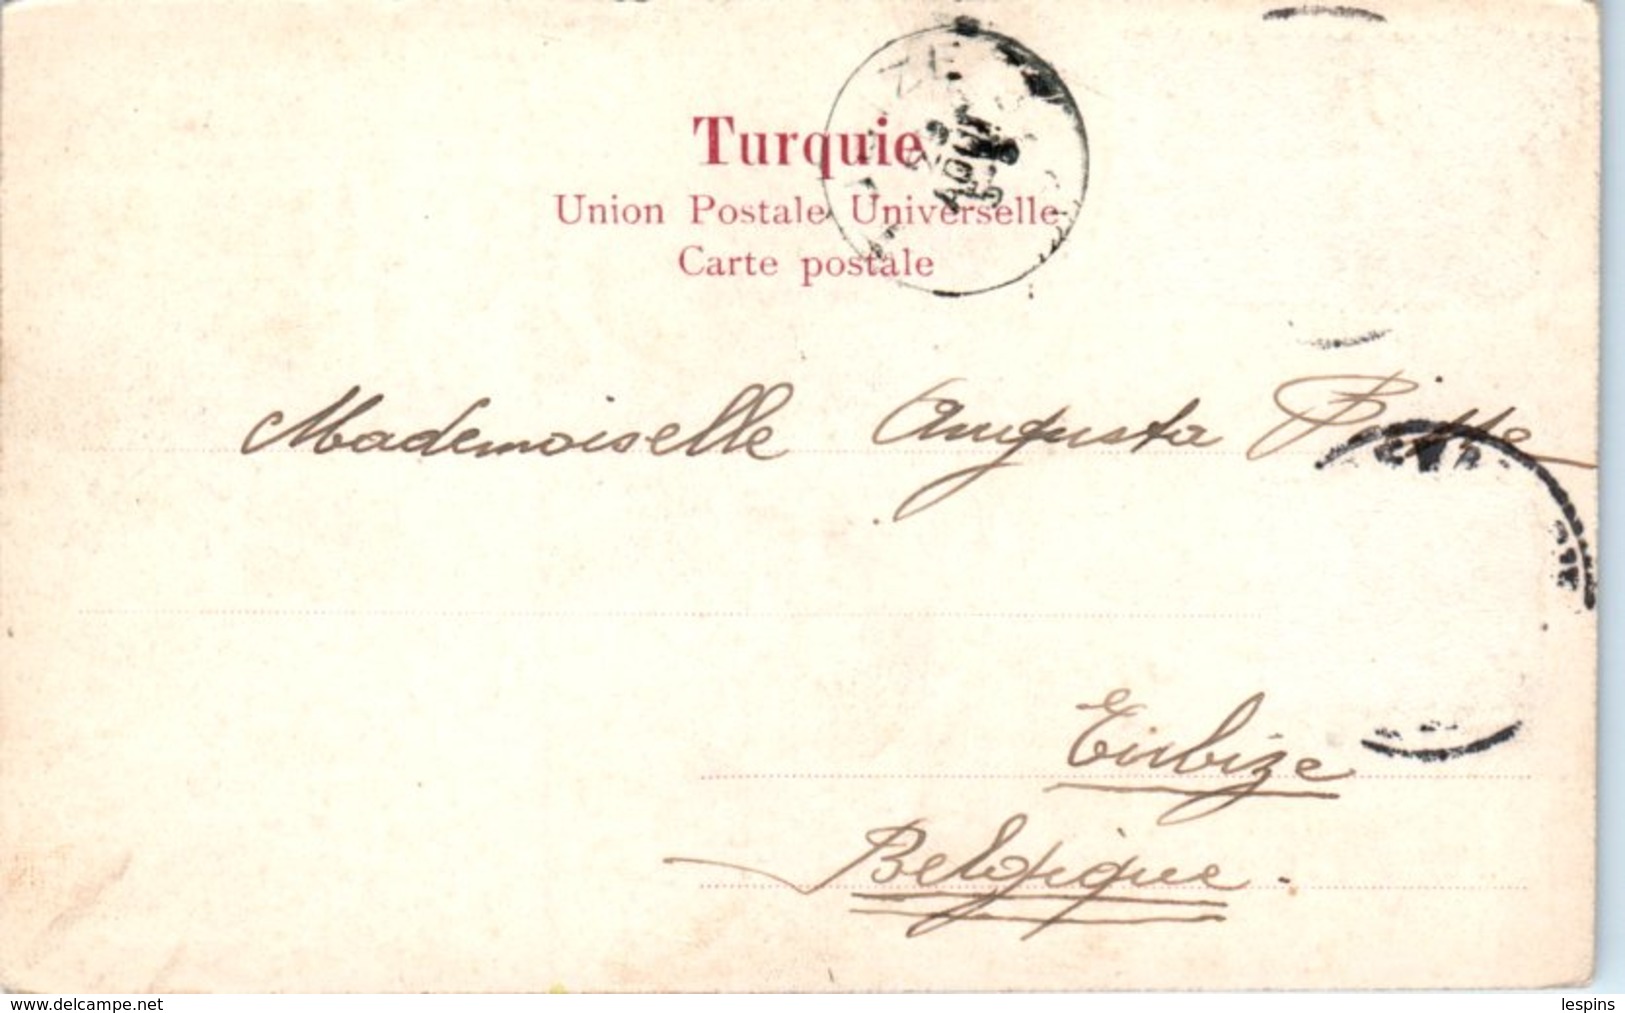 Turquie
Union Postale Universelle
Carte postale
AOUT
Mademoiselle Augusta
Eirbize
Belgique.
www.delcampe.net
lespins